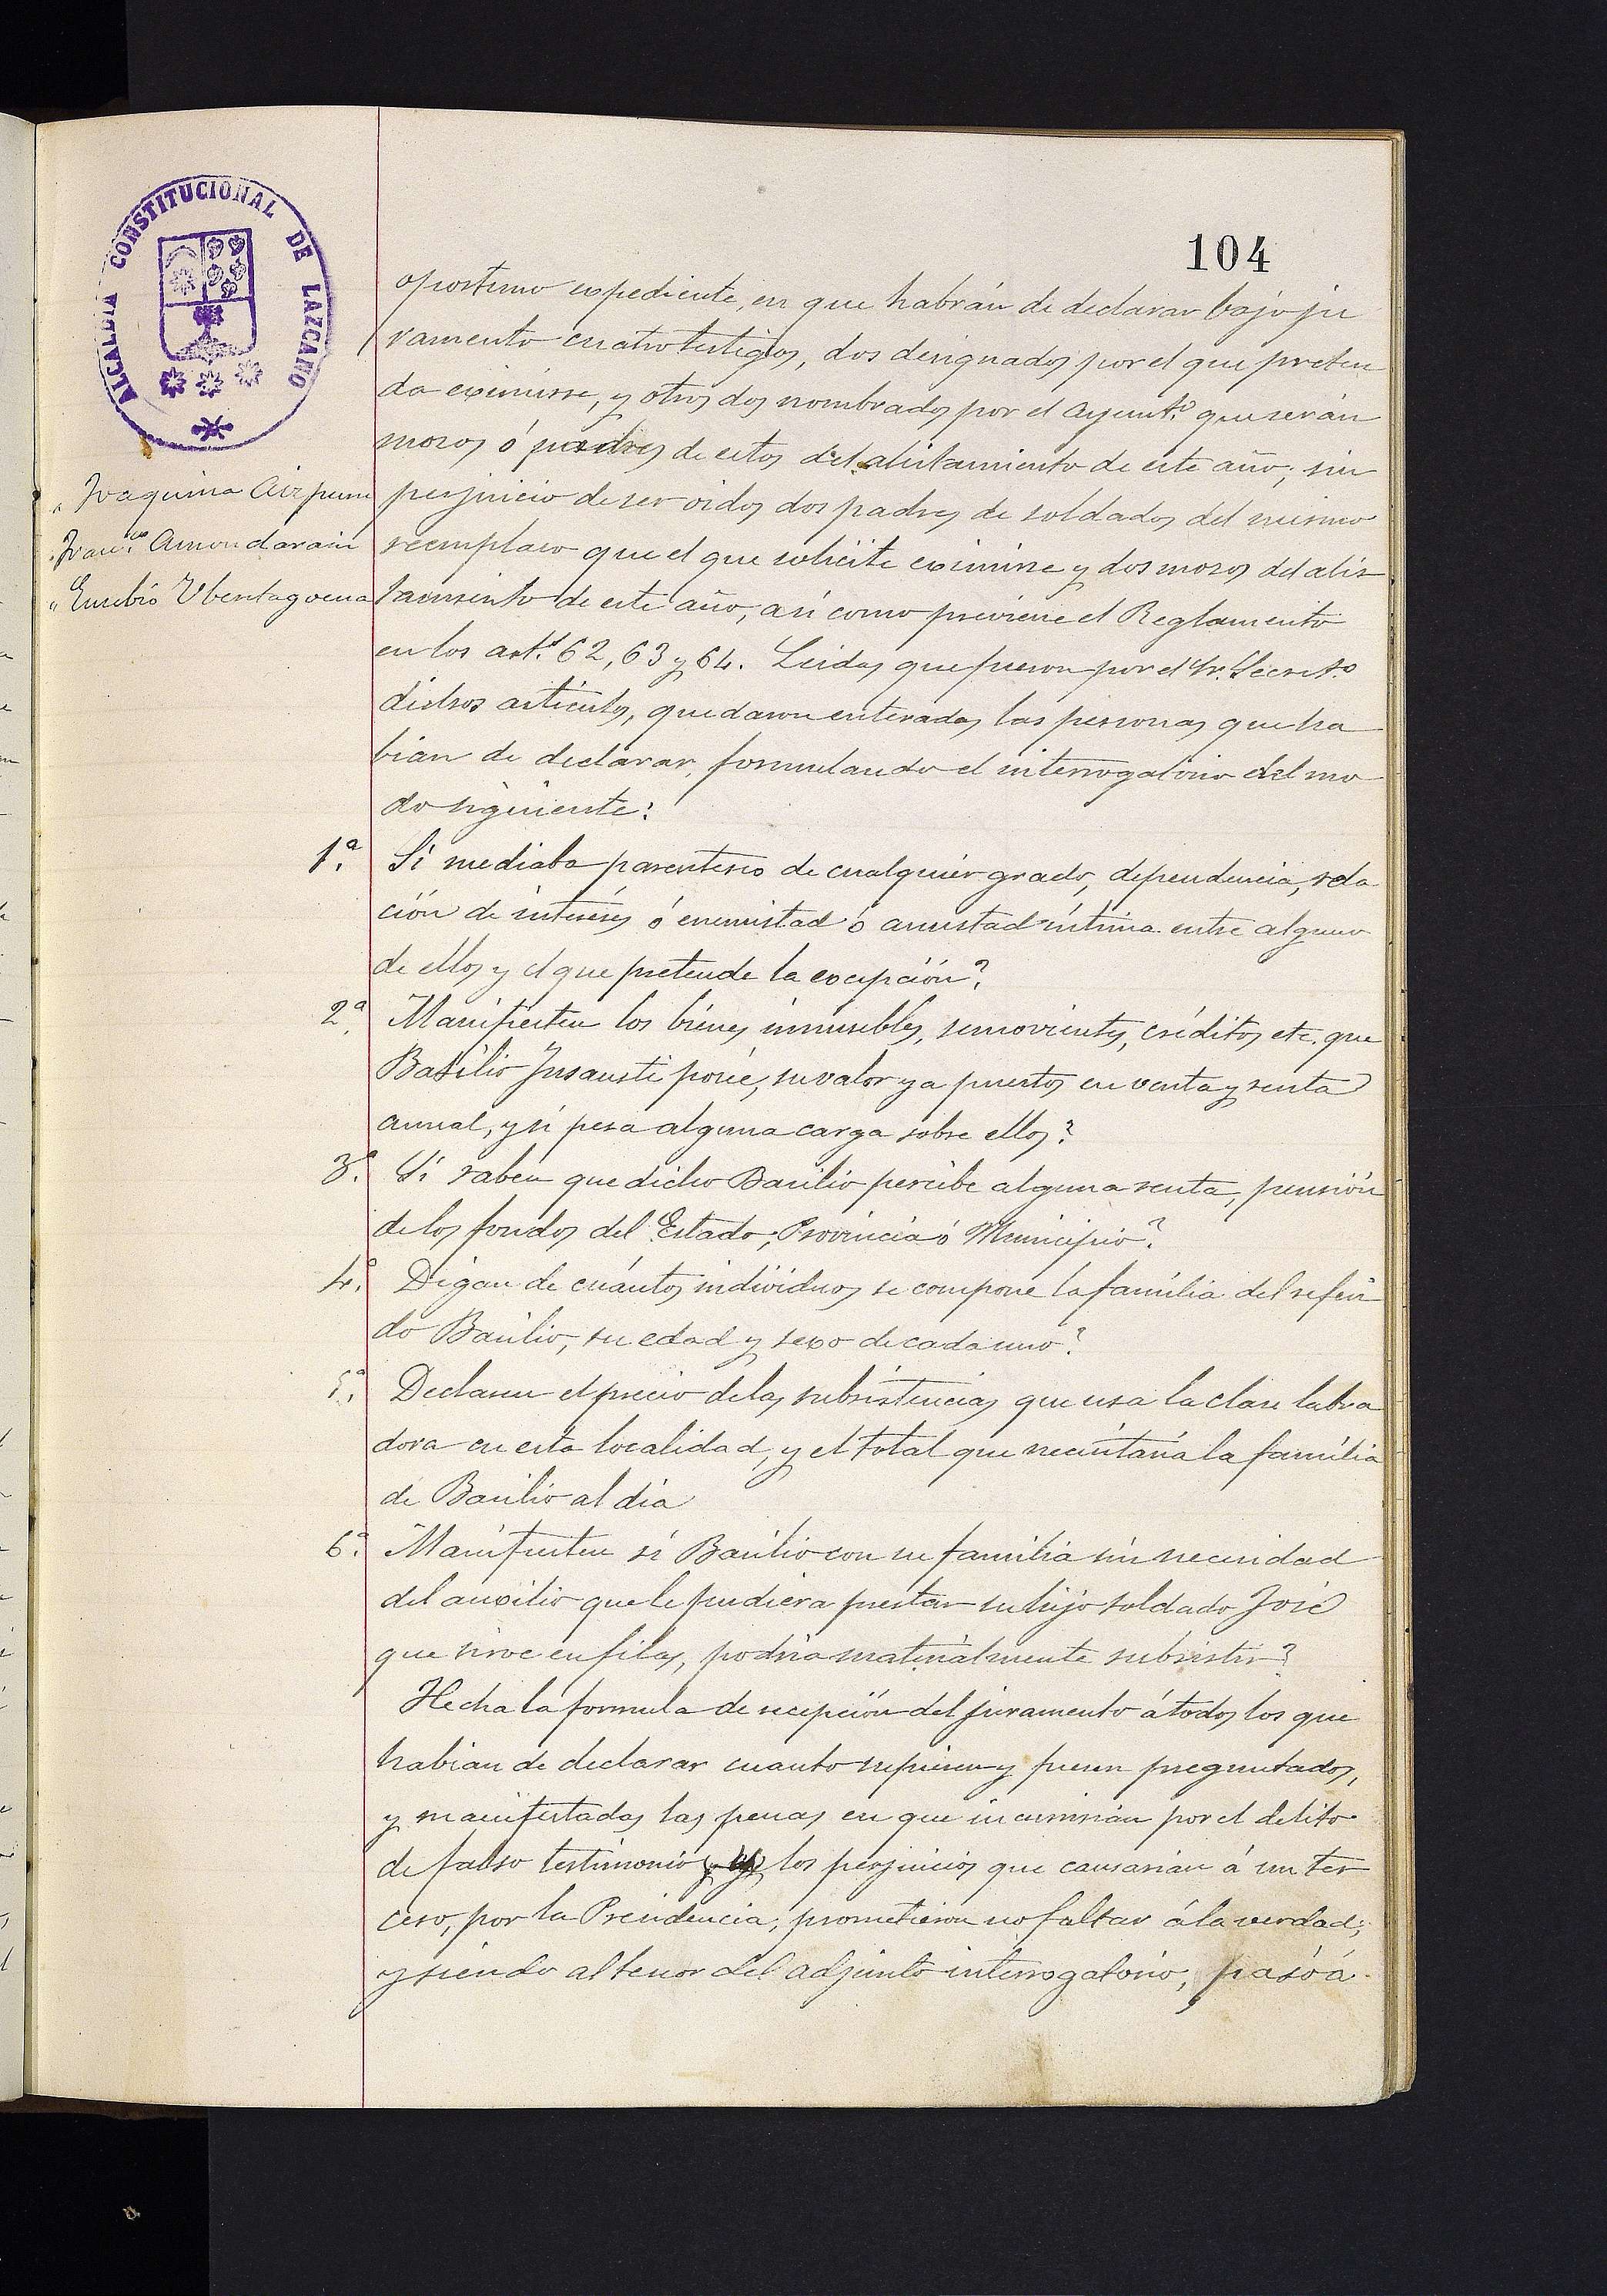 104
ALCALDIA CONSTITUCIONAL DE LAZCANO
" Joaquina
" Franco Amondarain
" Eusebio Ubentagoena
oportuno expediente, en que habrán de declarar bajo ju
ramento cuatro testigos, dos designados por el que preten
da eximirse, y otros dos nombrados por el Ayuntº que serán
mozos ó padres de estos del alistamiento de este año; sin
perjuicio de ser oidos dos padres de soldados del mismo
reemplazo que el que solicite eximirse y dos mozos del alis
tamiento de este año, así como previene el Reglamento
en los arts 62, 63 y 64. Leidos que fueron por el Sr. Secretº
dichos artículos, quedaron enteradas las personas que ha
bian de declarar, formulando el interrogatorio del mo
do siguiente:
1ª. Si mediaba parentesco de cualquier grado, dependencia, rela
ción de intereses ó enemistad ó amistad íntima entre alguno
de ellos y el que pretende la excepción?
2ª. Manifiesten los bienes inmuebles, semovientes, créditos etc. que
Basilio Insausti posée, su valor ya puestos en venta y renta
anual, y si pesa alguna carga sobre ellos?
3ª. Si saben que dicho Basilio percibe alguna renta, pensión
de los fondos del Estado, Provincia ó Municipio?
4ª. Digan de cuántos individuos se compone la família del referi
do Basilio, su edad y sexo de cada uno?
5ª. Declaren el precio de las subsistencias que usa la clase labra
dora en esta localidad, y el total que necesitaría la família
de Basilio al dia
6ª. Manifiesten si Basilio con su familia sin necesidad
del auxilio que le pudiera prestar su hijo soldado José
que sirve en filas, podría materialmente subsistir?
Hecha la formula de recepción del juramento á todos los que
habian de declarar cuanto supiesen y fuesen preguntados,
y manifestadas las penas en que incurririan por el delito
de falso testimonio y los perjuicios que causarian á un ter
cero, por la Presidencia; prometieron no faltar á la verdad;
y siendo al tenor del adjunto interrogatorio, pasó á